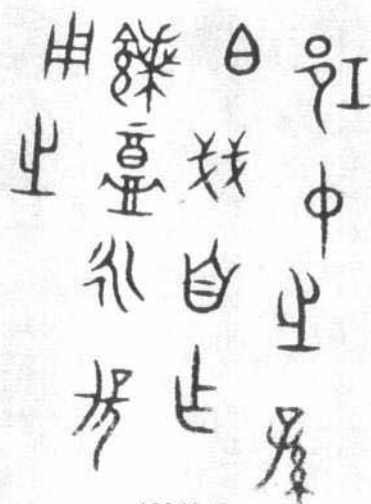 邛中之孫
白戔自乍
永保
用之